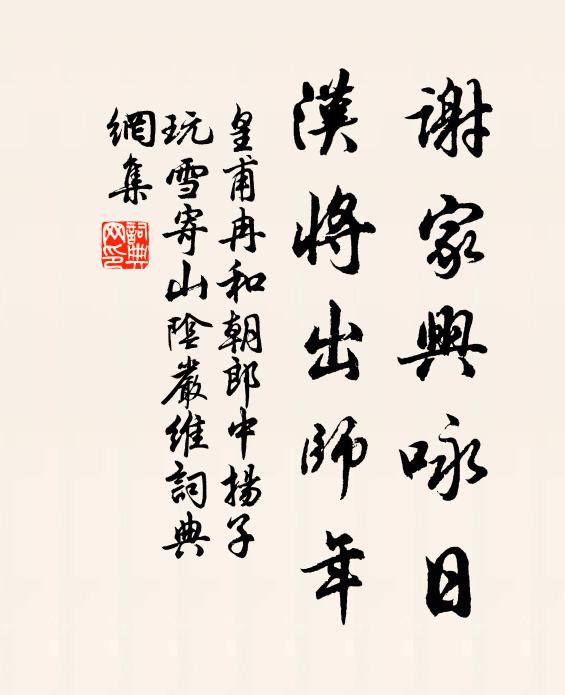 謝家興咏日
漢將出師年
皇甫冉和朝郎中揚子
玩雪寄山陰嚴維詞典
網集
詞典
网印